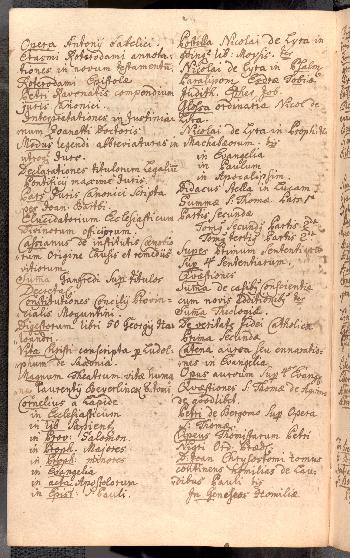 Opera Antonij Sabelici
Erasmi Roterodami annota-
tiones in novum testamentū
Roterodami Epistolæ
Petri Ravenatis compendium
juris Canonici.
Interpretationes in Justinia-
num Joanetti Doctoris
Modus legendi abbreviaturas in
utroq Jure.
Declarationes titulorum Legaliū
Pontificij maxime Juris
Pars Juris Canonici Scripta
per Joan
Elucidatorium Ecclesiasticum
Divinorum officiorum.
Cassianus de institutis cænobio
rum Origine Causis et remedijs
vitiorum.
Suma Janfredi Sup titulos
Decretal
Constitutiones Concilij Provin-
cialis Moguntini.
Digestorum libri 50 Georgij Ha-
loandri
Vita Christi conscripta p Ludol-
phum de Saxonia
Magnum Theatrum vitæ humæ
næ Laurentij Beyerlinck 8 tomi
Cornelius a Lapide
in Ecclesiasticum
in lib Sapient
in Prov: Salomon.
in Proph: Majores
in Proph: minores
in Evangelia
in acta Apostolorum
in Epist: S Pauli.
Postilla Nicolai de Lyra in
quinq lib: Moysis.
Nicolai de Lyra in Psalm
Paralipom Esdræ Tobiæ
Judith. Esther Job.
Glossa ordinaria Nicol de
Lyra.
Nicolai de Lyra in Prophetas
Machabæorum.
in Evangelia
in Paulum
in Apocalipsim
Didacus Stella in Lucam
Summæ S. Thomæ Pars 1ª
Partis Secundæ
Tomg Secundg Partis 2dæ
Tomg tertig Partis 2dæ
Super primum Sententiarū
Sup 4m Sententiarum.
Quæstiones
Suma de casibg conscientiæ
cum novis additionibg
Suma Theologiæ
De veritate fidei Catholicæ
Prima Secundæ
Catena aurea seu ennaratio-
nes in Evangelia
Opus aureum Sup 4 Evang
Quæstiones S. Thomæ de Aquino
de quodlibet.
Petri de Bergomo Sup Opera
S. Thomæ.
Clipeus Thomistarum Petri
Nigri Ord. Prædic.
D. Joan Chrysostomi tomus
continens homilias de Lau-
dibus Pauli
In Genesim Homiliæ